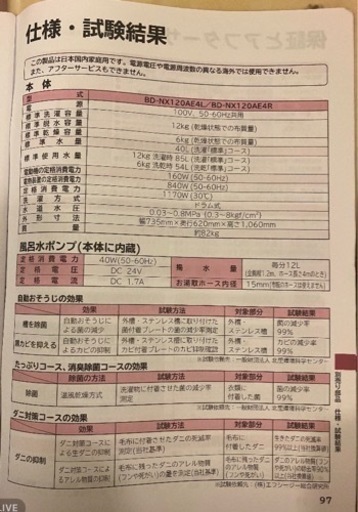 仕様・試験結果
この製品は日本国内家庭用です。電源電圧や電源周波数の異なる海外では使用できません。
また、アフターサービスもできません。
本体
型式 BD-NX120AE4L／BD-NX120AE4R
電源 100V、50-60Hz共用
標準洗濯容量 12kg(乾燥状態での布質量)
標準脱水容量
標準乾燥容量 6kg(乾燥状態での布質量)
標準水量 40L(洗濯〔標準〕コース)
標準使用水量 12kg 洗濯時 85L(洗濯〔標準〕コース)
6kg 洗乾時 54L(洗乾〔標準〕コース)
電動機の定格消費電力 160W(50-60Hz)
840W(50-60Hz)
定格消費電力 1170W(30℃)
洗濯方式 ドラム式
水道水圧 0.03～0.8MPa(0.3～8kgf/cm²)
外形寸法 幅735mm×奥行620mm×高さ1,060mm
質量 約82kg
風呂水ポンプ(本体に内蔵)
定格消費電力 40W(50-60Hz)
定格電圧 DC 24V
定格電流 DC 1.7A
吸水量 毎分12L
お湯取ホース内径 15mm
自動おそうじの効果
効果 試験方法 対象部分 試験結果
槽を除菌 自動おそうじによる菌の減少 外槽・ステンレス槽に取り付けた菌付着プレートの菌の減少率測定 外槽・ステンレス槽 菌の減少率 99%
黒カビを抑える 自動おそうじによるカビの抑制 外槽・ステンレス槽に取り付けたカビ付着プレートのカビ抑制確認 外槽・ステンレス槽 カビの減少率 99%
※試験依頼先：一般財団法人 北里環境科学センター
たっぷりコース、消臭除菌コースの効果
除菌の方法 試験方法 対象部分 試験結果
除菌 温風乾燥方式 洗濯物に付着させた菌の減少率測定 衣類に付着した菌 菌の減少率 99%
※試験依頼先：一般財団法人 北里環境科学センター
ダニ対策コースの効果
効果 試験方法 対象部分 試験結果
ダニの抑制 ダニ対策コースによる生ダニの抑制 毛布に付着させたダニの死滅率測定(当社基準) 毛布に付着したダニ 生きたダニの死滅率 99%以上
ダニ対策コースによるアレル物質の抑制 毛布に残ったダニのアレル物質(フンや死がい)の量を測定(当社基準) 毛布に残ったダニのアレル物質(フンや死がい)
※試験依頼先：(株)エフシージー総合研究所
別売り部品
仕様・試験結果
97
LIVE